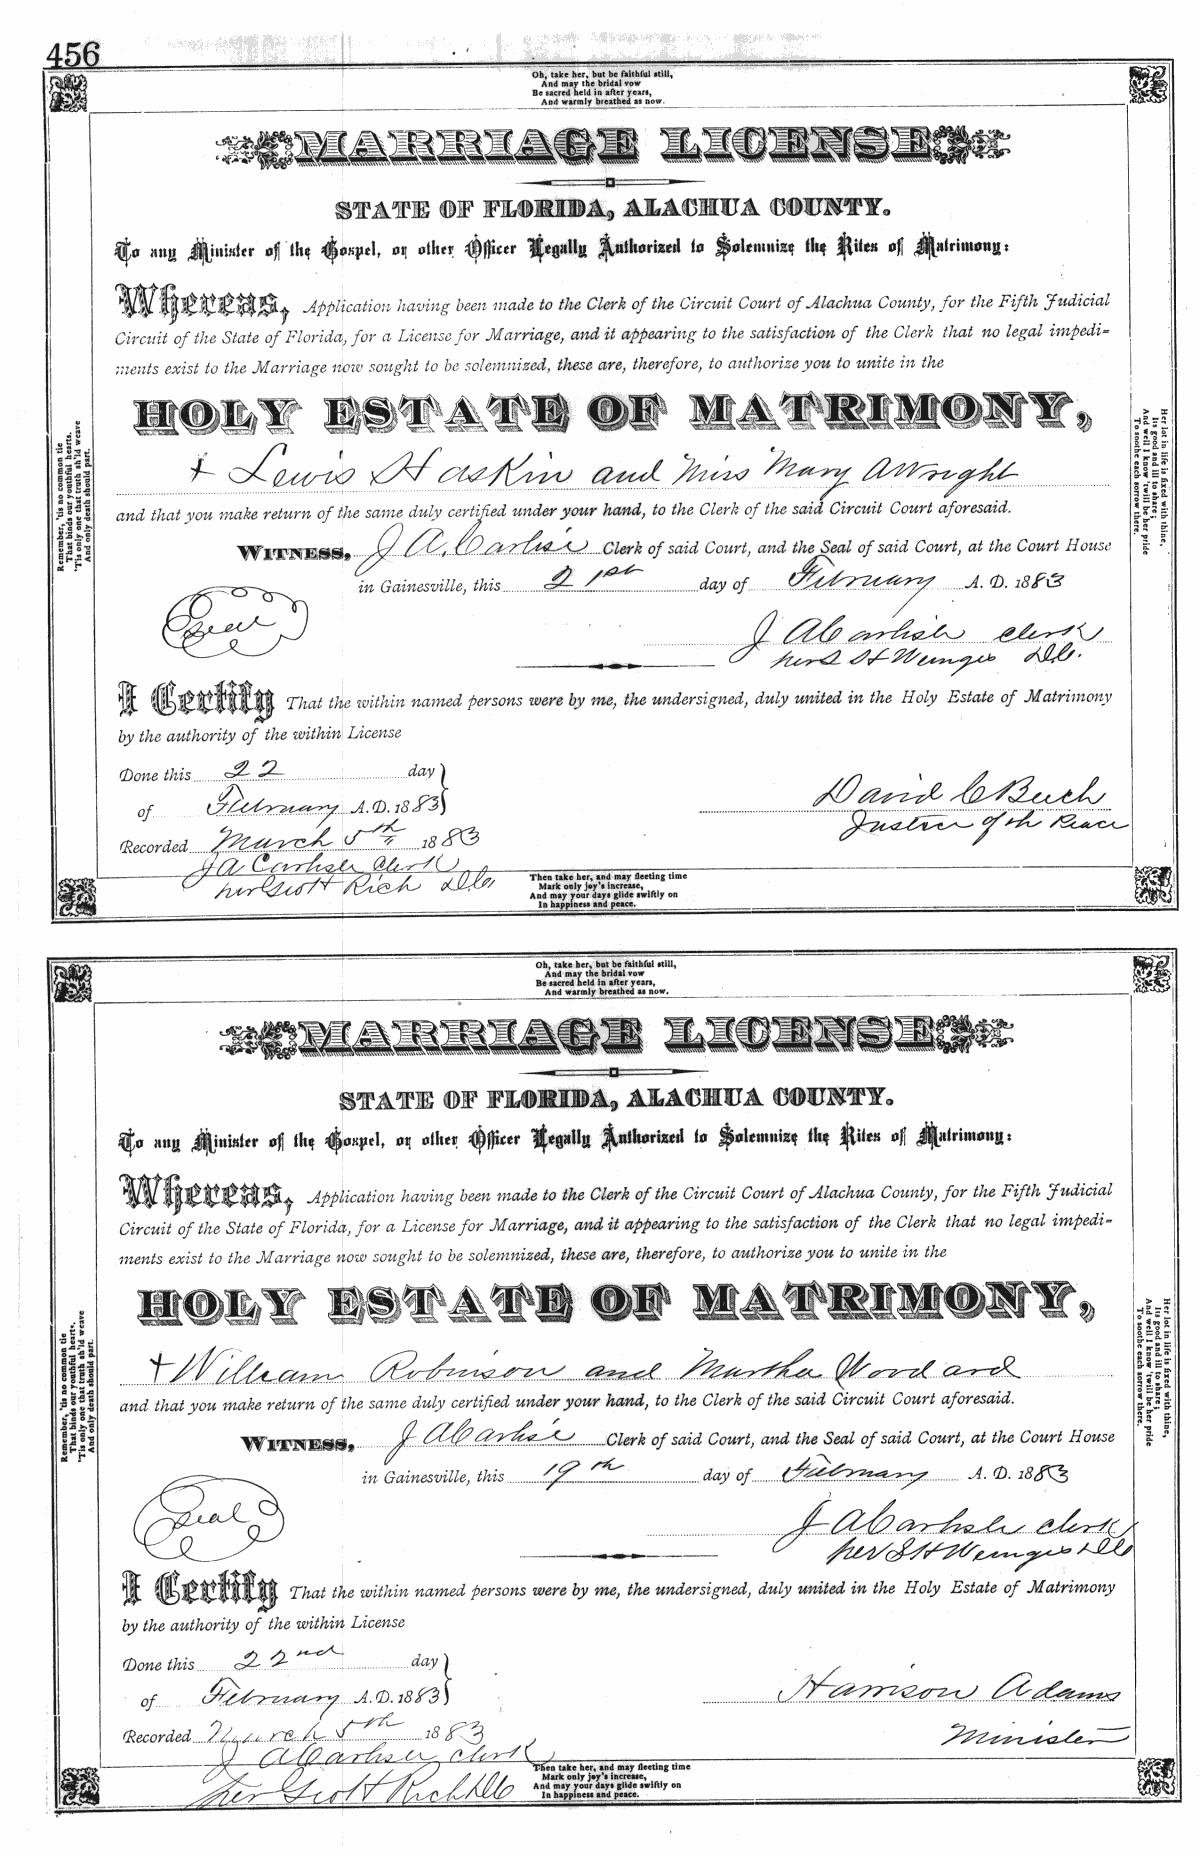 456
Oh, take her, but be faithful still,
And may the bridal vow
Be sacred held in after years,
And warmly breathed as now.
MARRIAGE LICENSE
STATE OF FLORIDA, ALACHUA COUNTY.
To any Minister of the Gospel, or other Officer Legally Authorized to Solemnize the Rites of Matrimony:
Whereas, Application having been made to the Clerk of the Circuit Court of Alachua County, for the Fifth Judicial
Circuit of the State of Florida, for a License for Marriage, and it appearing to the satisfaction of the Clerk that no legal impedi-
ments exist to the Marriage now sought to be solemnized, these are, therefore, to authorize you to unite in the
HOLY ESTATE OF MATRIMONY,
+ Lewis Haskin and Miss Mary A Wright
and that you make return of the same duly certified under your hand, to the Clerk of the said Circuit Court aforesaid.
WITNESS, J A. Carlisle Clerk of said Court, and the Seal of said Court, at the Court House
in Gainesville, this 21st day of February A. D. 1883
Seal
J A Carlisle clerk
per S H Wienges D.C.
I Certify That the within named persons were by me, the undersigned, duly united in the Holy Estate of Matrimony
by the authority of the within License
Done this 22 day
of February A.D. 1883
David C Beech
Justice of th Peace
Recorded March 5th 1883
J A Carlisle Clerk
per Scott Rich D.C.
Remember, 'tis no common tie
That binds our youthful hearts,
'Tis only one that truth sh'ld weave
And only death should part.
Her lot in life is fixed with thine,
Its good and ill to share;
And well I know 'twill be her pride
To soothe each sorrow there.
Then take her, and may fleeting time
Mark only joy's increase,
And may your days glide swiftly on
In happiness and peace.
Oh, take her, but be faithful still,
And may the bridal vow
Be sacred held in after years,
And warmly breathed as now.
MARRIAGE LICENSE
STATE OF FLORIDA, ALACHUA COUNTY.
To any Minister of the Gospel, or other Officer Legally Authorized to Solemnize the Rites of Matrimony:
Whereas, Application having been made to the Clerk of the Circuit Court of Alachua County, for the Fifth Judicial
Circuit of the State of Florida, for a License for Marriage, and it appearing to the satisfaction of the Clerk that no legal impedi-
ments exist to the Marriage now sought to be solemnized, these are, therefore, to authorize you to unite in the
HOLY ESTATE OF MATRIMONY,
+ William Robinson and Martha Woodard
and that you make return of the same duly certified under your hand, to the Clerk of the said Circuit Court aforesaid.
WITNESS, J A Carlisle Clerk of said Court, and the Seal of said Court, at the Court House
in Gainesville, this 19th day of February A. D. 1883
Seal
J A Carlisle clerk
per S H Wienges D C
I Certify That the within named persons were by me, the undersigned, duly united in the Holy Estate of Matrimony
by the authority of the within License
Done this 22nd day
of February A.D. 1883
Harrison Adams
Minister
Recorded March 5th 1883
J A Carlisle clerk
per Scott Rich D C
Remember, 'tis no common tie
That binds our youthful hearts,
'Tis only one that truth sh'ld weave
And only death should part.
Her lot in life is fixed with thine,
Its good and ill to share;
And well I know 'twill be her pride
To soothe each sorrow there.
Then take her, and may fleeting time
Mark only joy's increase,
And may your days glide swiftly on
In happiness and peace.